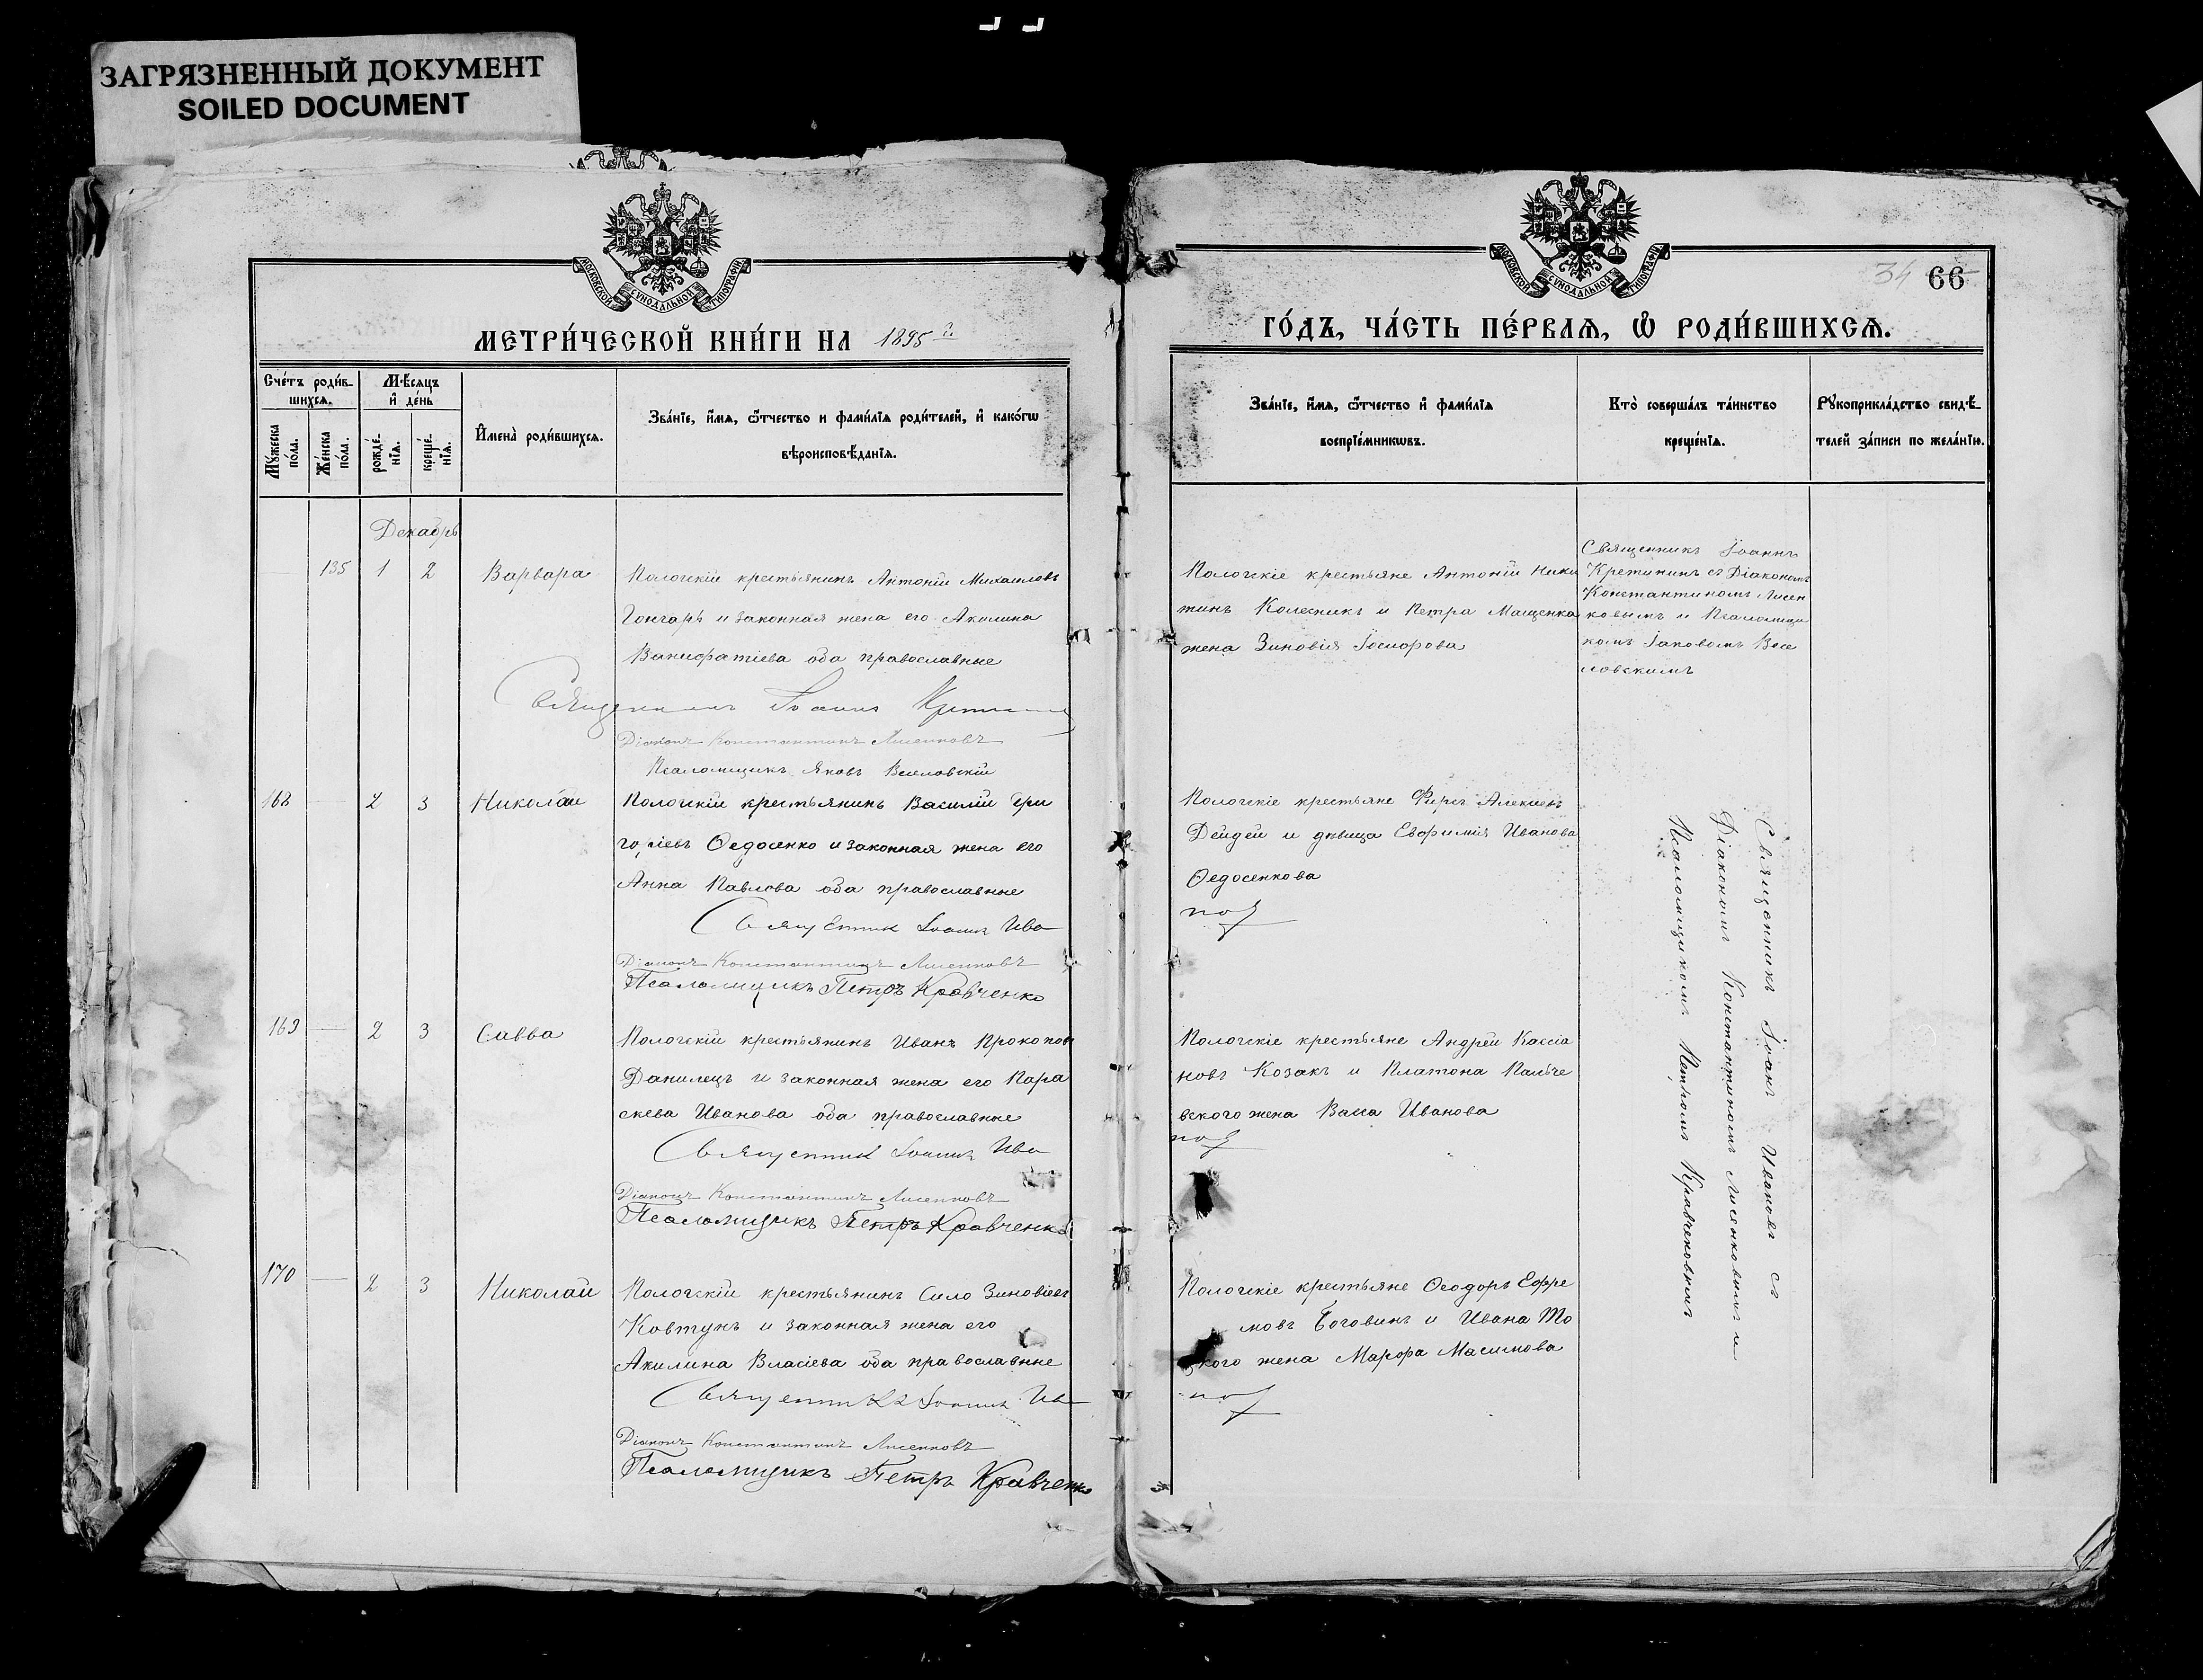 ЗАГРЯЗНЕННЫЙ ДОКУМЕНТ
SOILED DOCUMENT
МОСКОВСКОЙ СѴНОДАЛЬНОЙ ТИПОГРАФІИ
МЕТРИ́ЧЕСКОЙ КНИ́ГИ НА 1895 г.
Сче́тъ роди́в-
шихсѧ.
Мѣ́сѧцъ
и҆ де́нь
Мꙋ́жеска
по́ла.
Же́нска
по́ла.
рожде́-
нїѧ.
креще́-
нїѧ.
И҆мена̀ роди́вшихсѧ.
Зва́нїе, и҆́мѧ, ѻ҆́тчество и фами́лїѧ роди́телей, и҆ како́гѡ
вѣроисповѣ́данїѧ.
Декабрь
135 1 2 Варвара
Пологскій крестьянинъ Антоній Михаиловъ
Гончаръ и законная жена его Акилина
Ванифатіева оба православные
Священникъ Іоаннъ
Діаконъ Константинъ Лисенковъ
Псаломщикъ Яковъ Веселовскій
168 2 3 Николай
Пологскій крестьянинъ Василій Гри
горіевъ Ѳедосенко и законная жена его
Анна Павлова оба православные
Священник Іоаннъ Ива
Діаконъ Константинъ Лисенковъ
Псаломщикъ Петръ Кравченко
169 2 3 Савва
Пологскій крестьянинъ Иванъ Прокопов
Данилецъ и законная жена его Пара
скева Иванова оба православные
Священник Іоаннъ Ива
Діаконъ Константинъ Лисенковъ
Псаломщикъ Петръ Кравченко
170 2 3 Николай
Пологскій крестьянинъ Сила Зиновіевъ
Ковтунъ и законная жена его
Акилина Власіева оба православные
Священникъ Іоаннъ Ив
Діаконъ Константинъ Лисенковъ
Псаломщикъ Петръ Кравченко
МОСКОВСКОЙ СѴНОДАЛЬНОЙ ТИПОГРАФІИ
34 66
ГО́ДЪ, ЧА́СТЬ ПЕ́РВАѦ, Ѽ РОДИ́ВШИХСѦ.
Зва́нїе, и҆́мѧ, ѻ҆́тчество и҆ фами́лїѧ
воспрїе́мникѡвъ.
Кто̀ соверша́лъ та́инство
креще́нїѧ.
Рꙋкоприкла́дство свидѣ́-
телей за́писи по жела́нїю.
Пологскіе крестьяне Антоній Ники
тинъ Колесникъ и Петра Мащенка
жена Зиновія Іосифова
Священникъ Іоаннъ
Кретининъ съ Діакономъ
Константиномъ Лисен
ковымъ и Псаломщи
комъ Іаковомъ Весе
ловскимъ
Пологскіе крестьяне Фирсъ Алексіевъ
Дейдей и дѣвица Евфимія Иванова
Ѳедосенкова
Пологскіе крестьяне Андрей Кассіа
новъ Козакъ и Платона Пальче
вского жена Васса Иванова
Пологскіе крестьяне Ѳеодоръ Ефре
мовъ Боговинъ и Ивана То
цкого жена Марфа Масимова
Священникъ Іоанн Ивановъ съ
Діакономъ Константиномъ Лисенковымъ и
Псаломщикомъ Петромъ Кравченковымъ